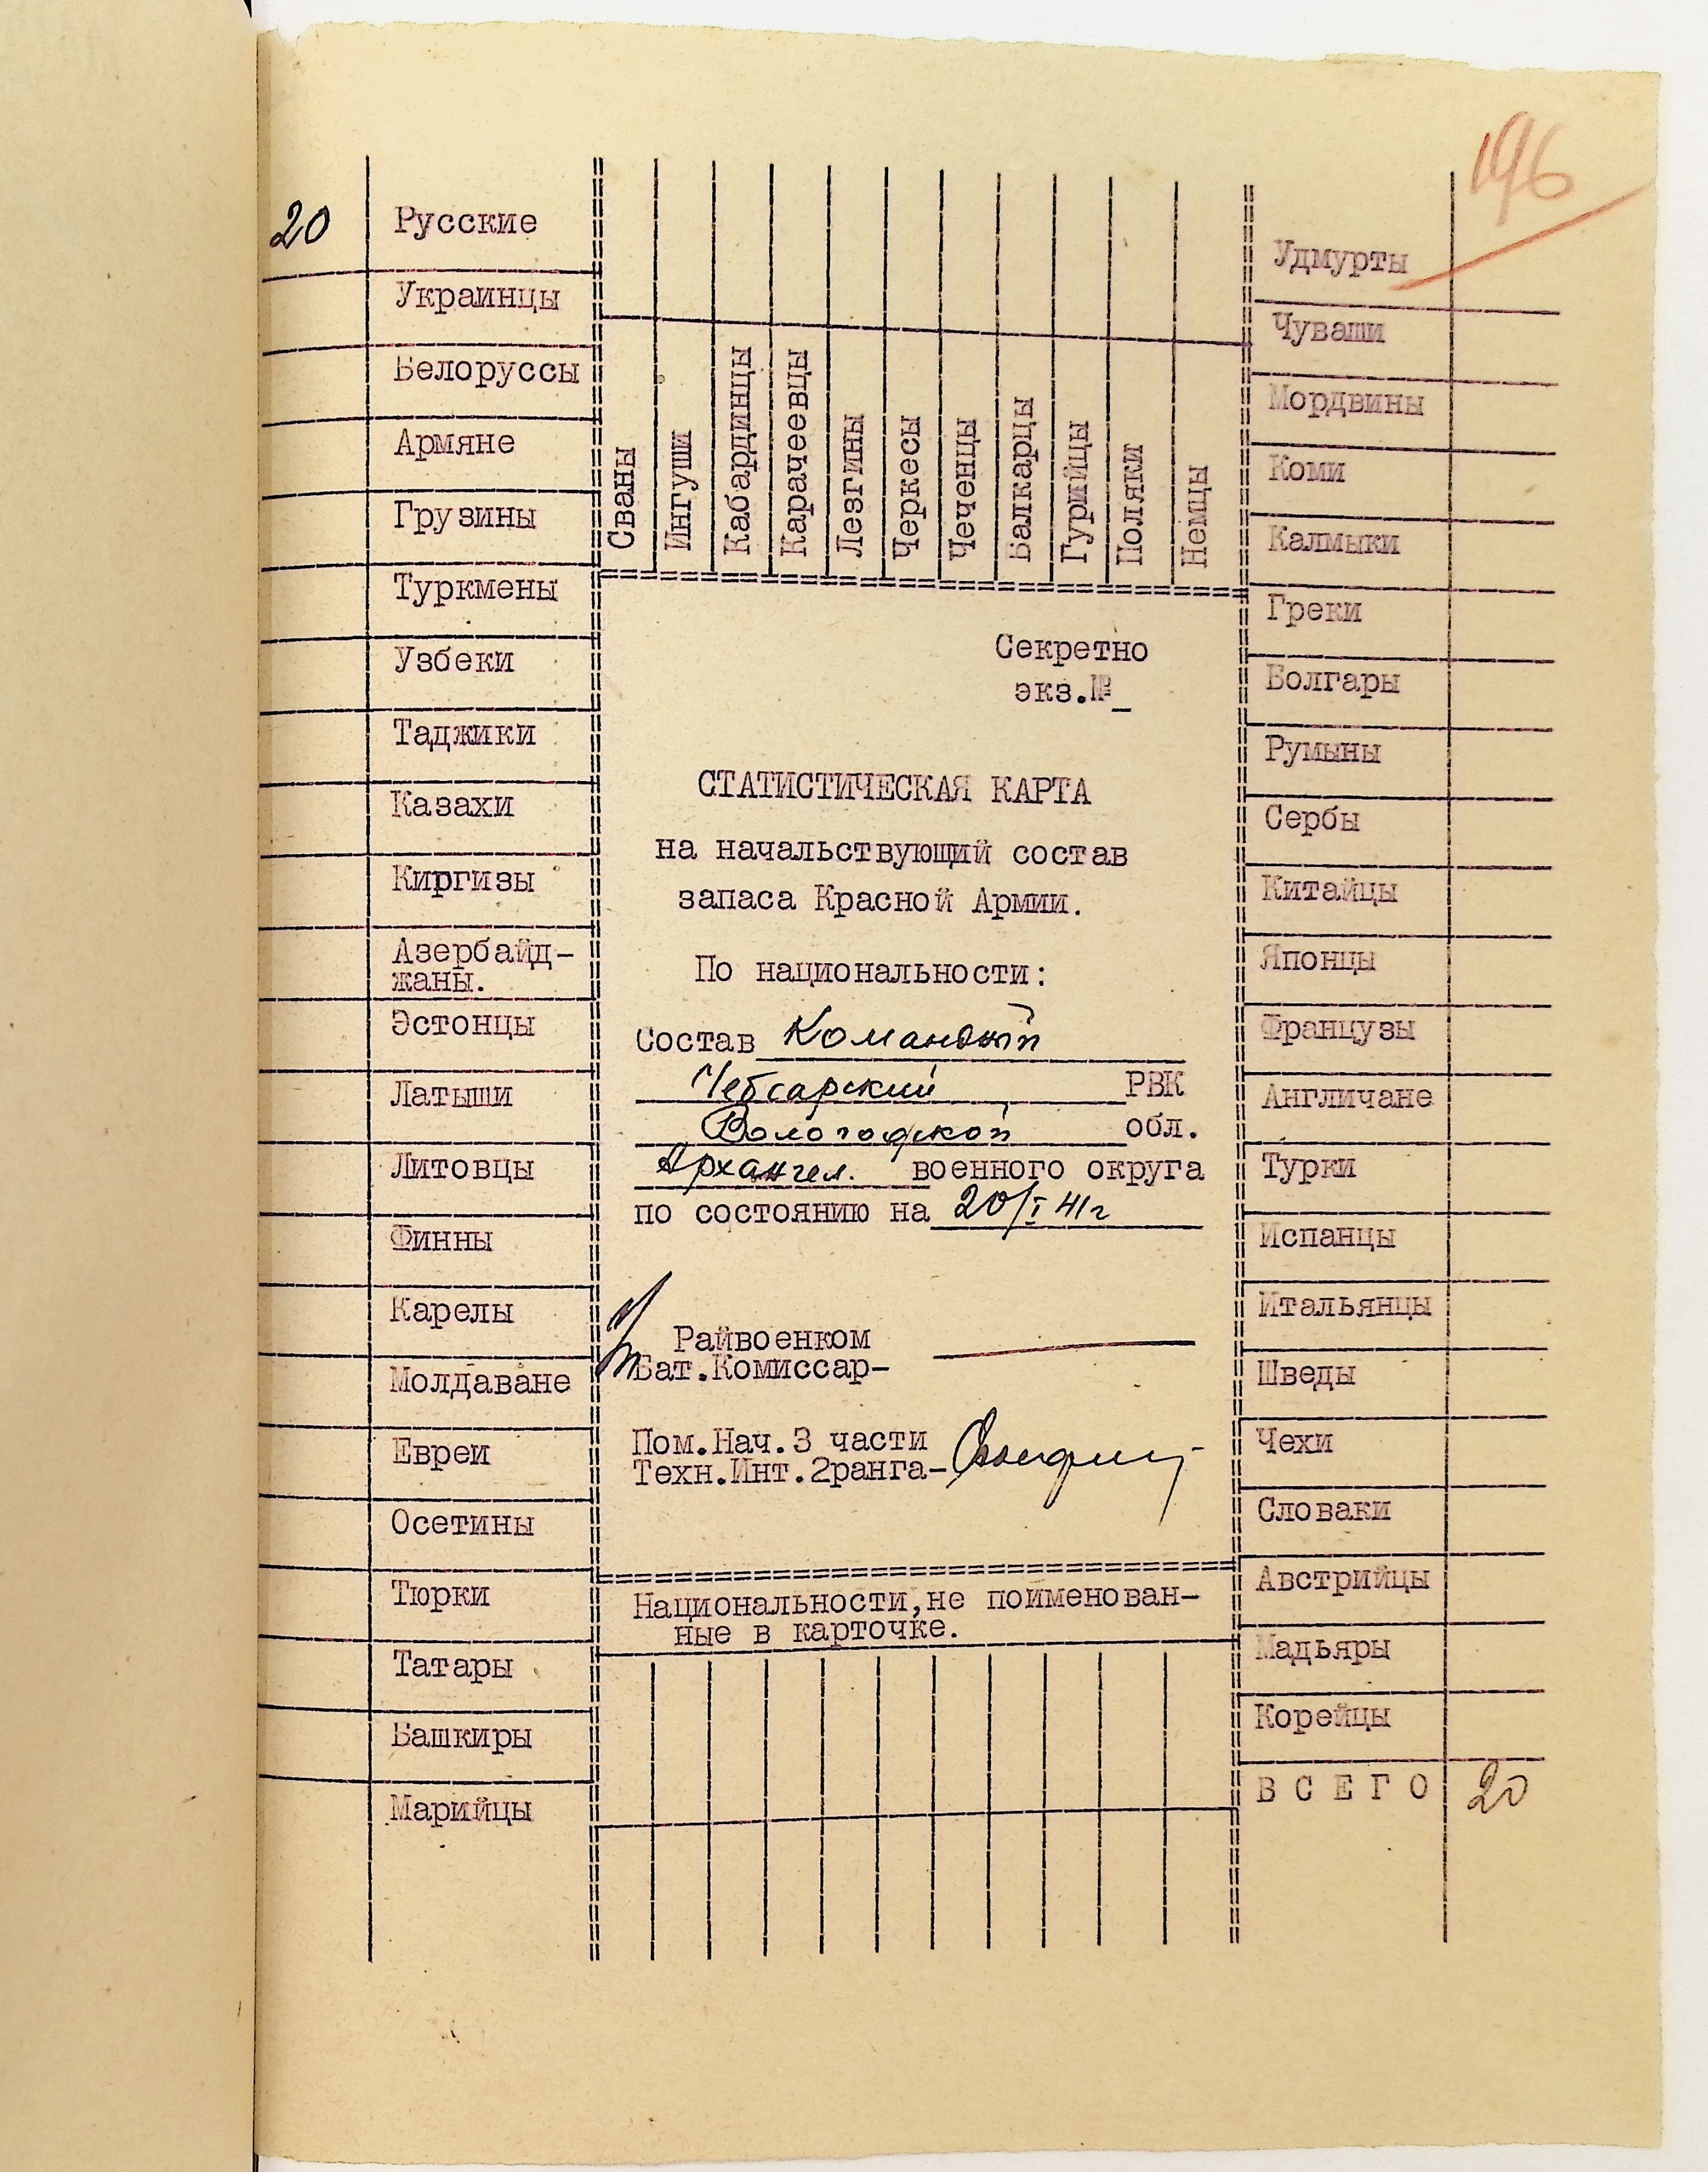 196
20 Русские
Украинцы
Белоруссы
Армяне
Грузины
Туркмены
Узбеки
Таджики
Казахи
Киргизы
Азербайд-
жаны.
Эстонцы
Латыши
Литовцы
Финны
Карелы
Молдаване
Евреи
Осетины
Тюрки
Татары
Башкиры
Марийцы
Сваны
Ингуши
Кабардинцы
Карачеевцы
Лезгины
Черкесы
Чеченцы
Балкарцы
Гурийцы
Поляки
Немцы
Секретно
экз.№_
СТАТИСТИЧЕСКАЯ КАРТА
на начальствующий состав
запаса Красной Армии.
По национальности:
Состав Командный
Чебсарский РВК
Вологодской обл.
Архангел. военного округа
по состоянию на 20/I 41г
Райвоенком
Бат.Комиссар-
Пом.Нач.3 части
Техн.Инт.2ранга-
Национальности,не поименован-
ные в карточке.
Удмурты
Чуваши
Мордвины
Коми
Калмыки
Греки
Болгары
Румыны
Сербы
Китайцы
Японцы
Французы
Англичане
Турки
Испанцы
Итальянцы
Шведы
Чехи
Словаки
Австрийцы
Мадьяры
Корейцы
ВСЕГО 20